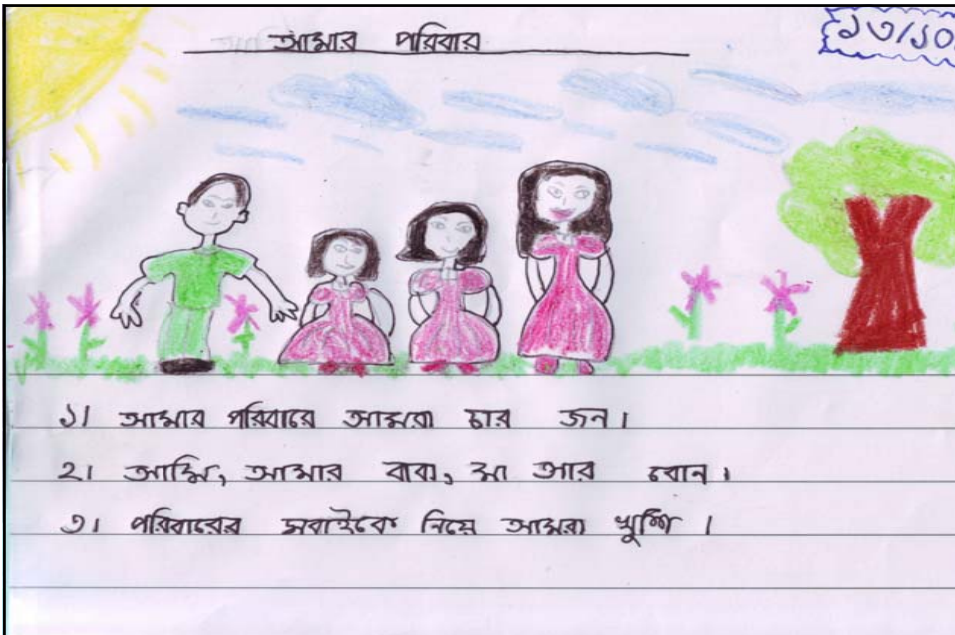 আমার পরিবার
১৩/১০
১। আমার পরিবারে আমরা চার জন।
২। আমি, আমার বাবা, মা আর বোন।
৩। পরিবারের সবাইকে নিয়ে আমরা খুশি।